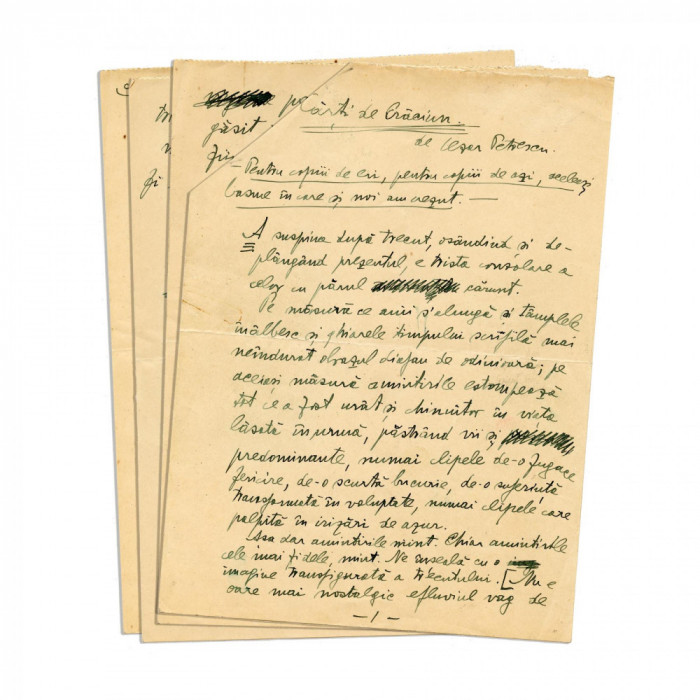 Cărți de Crăciun.
de Cezar Petrescu.
găsit
— Pentru copiii de eri, pentru copiii de azi, aceleași
basme în care și noi am crezut. —
A suspina după trecut, osândind și de-
plângând prezentul, e trista consolare a
celor cu părul cărunt.
Pe măsură ce anii s'alungă și tâmplele
înălbesc și ghiarele timpului scrijilă mai
neîndurat obrazul diafan de odinioară; pe
aceiași măsură amintirile estompează
tot ce a fost urât și chinuitor în viața
lăsată în urmă, păstrând vii și
predominante, numai clipele de-o fugace
fericire, de-o scurtă bucurie, de-o suferință
transformată în voluptate, numai clipele care
palpită în irizări de azur.
Așa dar amintirile mint. Chiar amintirile
cele mai fidele, mint. Ne înșeală cu o
imagine transfigurată a trecutului. [Nu e
oare mai nostalgic efluviul vag de
— 1 —